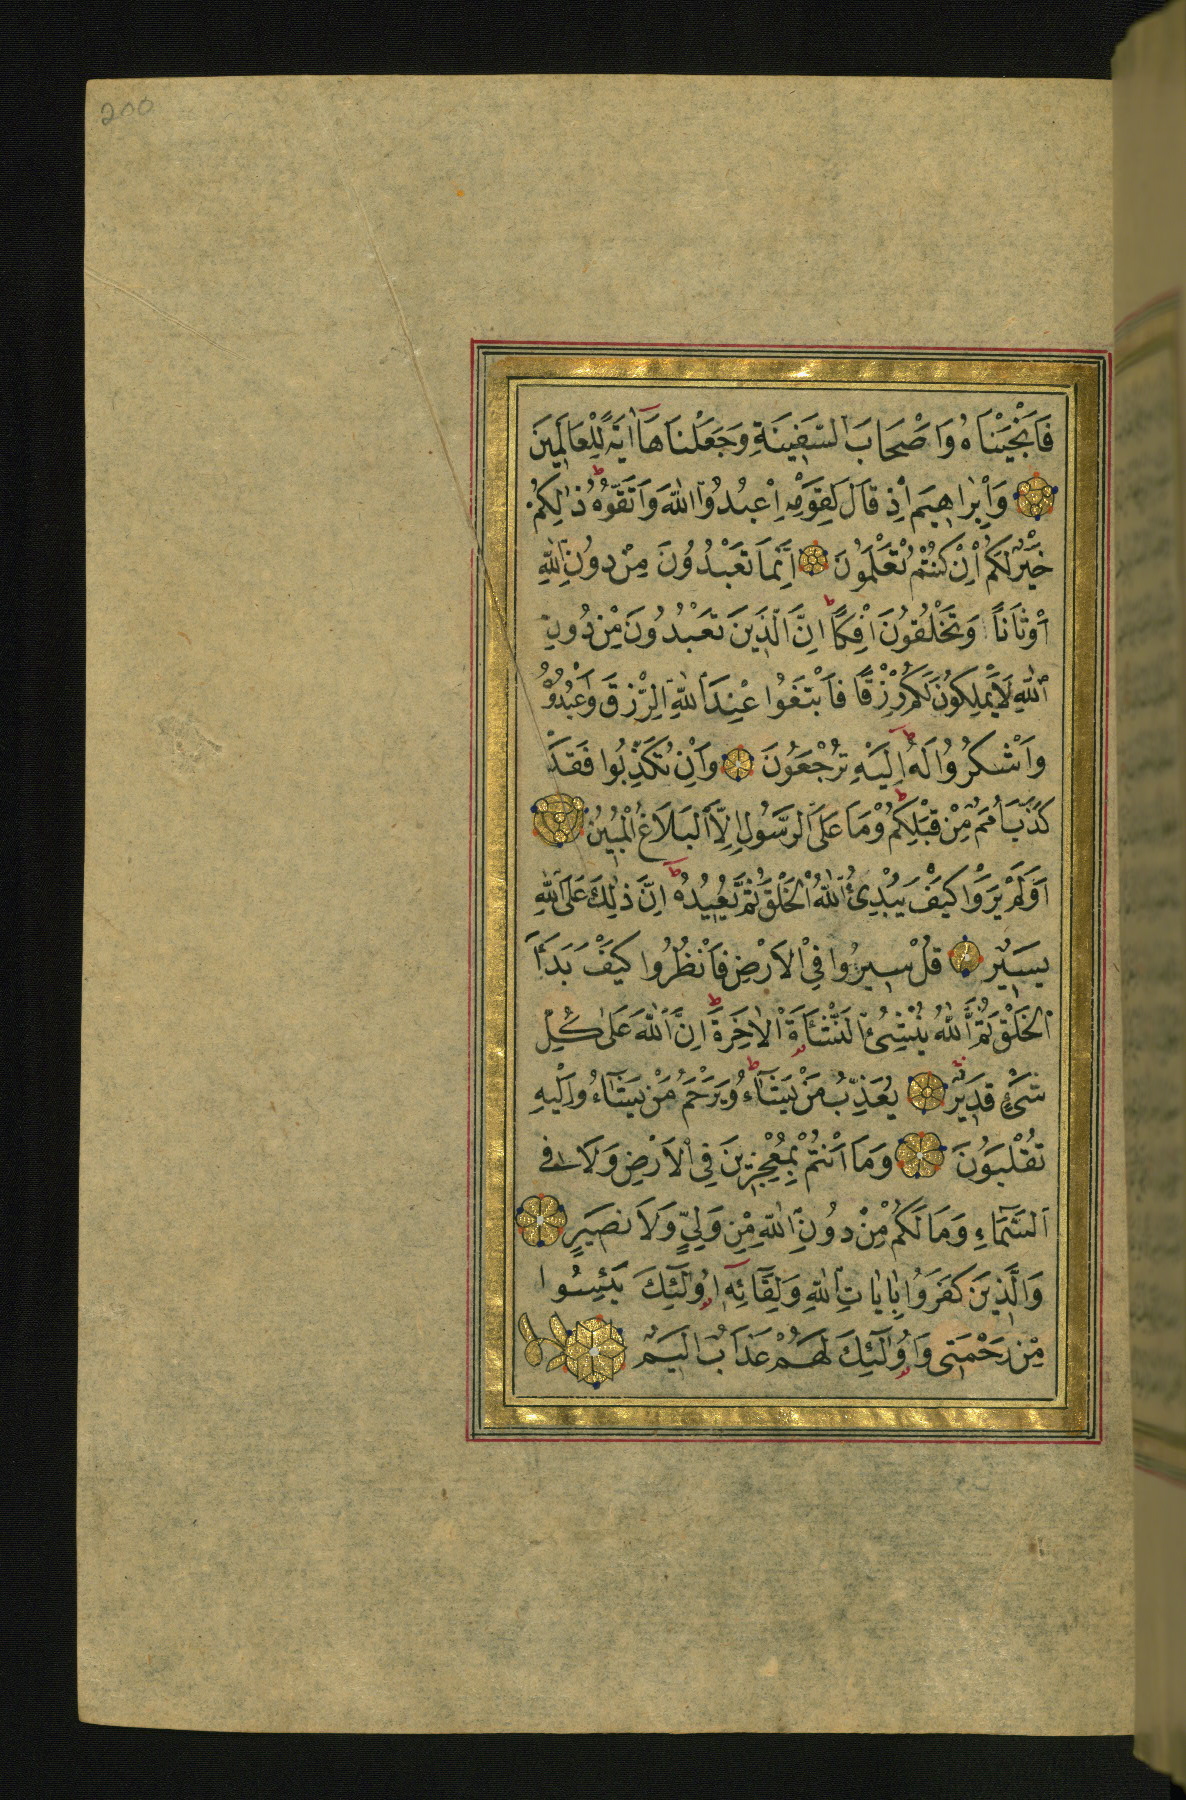 200
فَاَنْجَيْنَاهُ وَاَصْحَابَ السَّفِينَةِ وَجَعَلْنَاهَآ اٰيَةً لِلْعَالَمِينَ
وَاِبْرٰاهِيمَ اِذْ قَالَ لِقَوْمِهِ اعْبُدُوا اللّٰهَ وَاتَّقُوهُ ذٰلِكُمْ
خَيْرٌ لَكُمْ اِنْ كُنْتُمْ تَعْلَمُونَ اِنَّمَا تَعْبُدُونَ مِنْ دُونِ اللّٰهِ
اَوْثَانًا وَتَخْلُقُونَ اِفْكًا اِنَّ الَّذِينَ تَعْبُدُونَ مِنْ دُونِ
اللّٰهِ لَا يَمْلِكُونَ لَكُمْ رِزْقًا فَابْتَغُوا عِنْدَ اللّٰهِ الرِّزْقَ وَعْبُدُوهُ
وَاشْكُرُوا لَهُ اِلَيْهِ تُرْجَعُونَ وَاِنْ تُكَذِّبُوا فَقَدْ
كَذَّبَ اُمَمٌ مِنْ قَبْلِكُمْ وَمَا عَلَى الرَّسُولِ اِلَّا الْبَلَاغُ الْمُبِينُ
اَوَلَمْ يَرَوْا كَيْفَ يُبْدِئُ اللّٰهُ الْخَلْقَ ثُمَّ يُعِيدُهُ اِنَّ ذٰلِكَ عَلَى اللّٰهِ
يَسِيرٌ قُلْ سِيرُوا فِي الْاَرْضِ فَانْظُرُوا كَيْفَ بَدَاَ
الْخَلْقَ ثُمَّ اللّٰهُ يُنْشِئُ النَّشْاَةَ الْاٰخِرَةَ اِنَّ اللّٰهَ عَلٰى كُلِّ
شَيْءٍ قَدِيرٌ يُعَذِّبُ مَنْ يَشَآءُ وَيَرْحَمُ مَنْ يَشَآءُ وَاِلَيْهِ
تُقْلَبُونَ وَمَا اَنْتُمْ بِمُعْجِزِينَ فِي الْاَرْضِ وَلَا فِي
السَّمَآءِ وَمَا لَكُمْ مِنْ دُونِ اللّٰهِ مِنْ وَلِيٍّ وَلَا نَصِيرٍ
وَالَّذِينَ كَفَرُوا بِاٰيَاتِ اللّٰهِ وَلِقَآئِهِ اُولٰٓئِكَ يَئِسُوا
مِنْ رَحْمَتِي وَاُولٰٓئِكَ لَهُمْ عَذَابٌ اَلِيمٌ